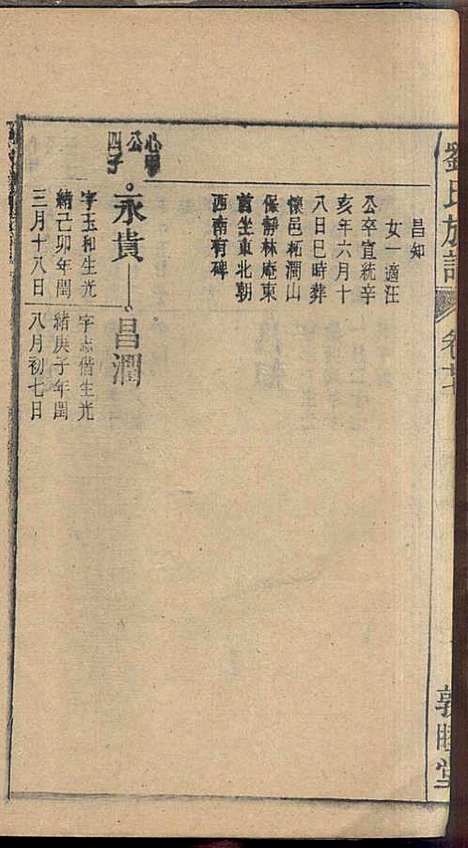 劉氏族譜
卷廿七
敦睦堂
昌知
女一適汪
公卒宣統辛
亥年六月十
八日巳時葬
懷邑柘澗山
保靜林庵東
首坐東北朝
西南有碑
公
四子
永貴
昌潤
字玉和生光
緒己卯年閏
三月十八日
字志偕生光
緒庚子年閏
八月初七日